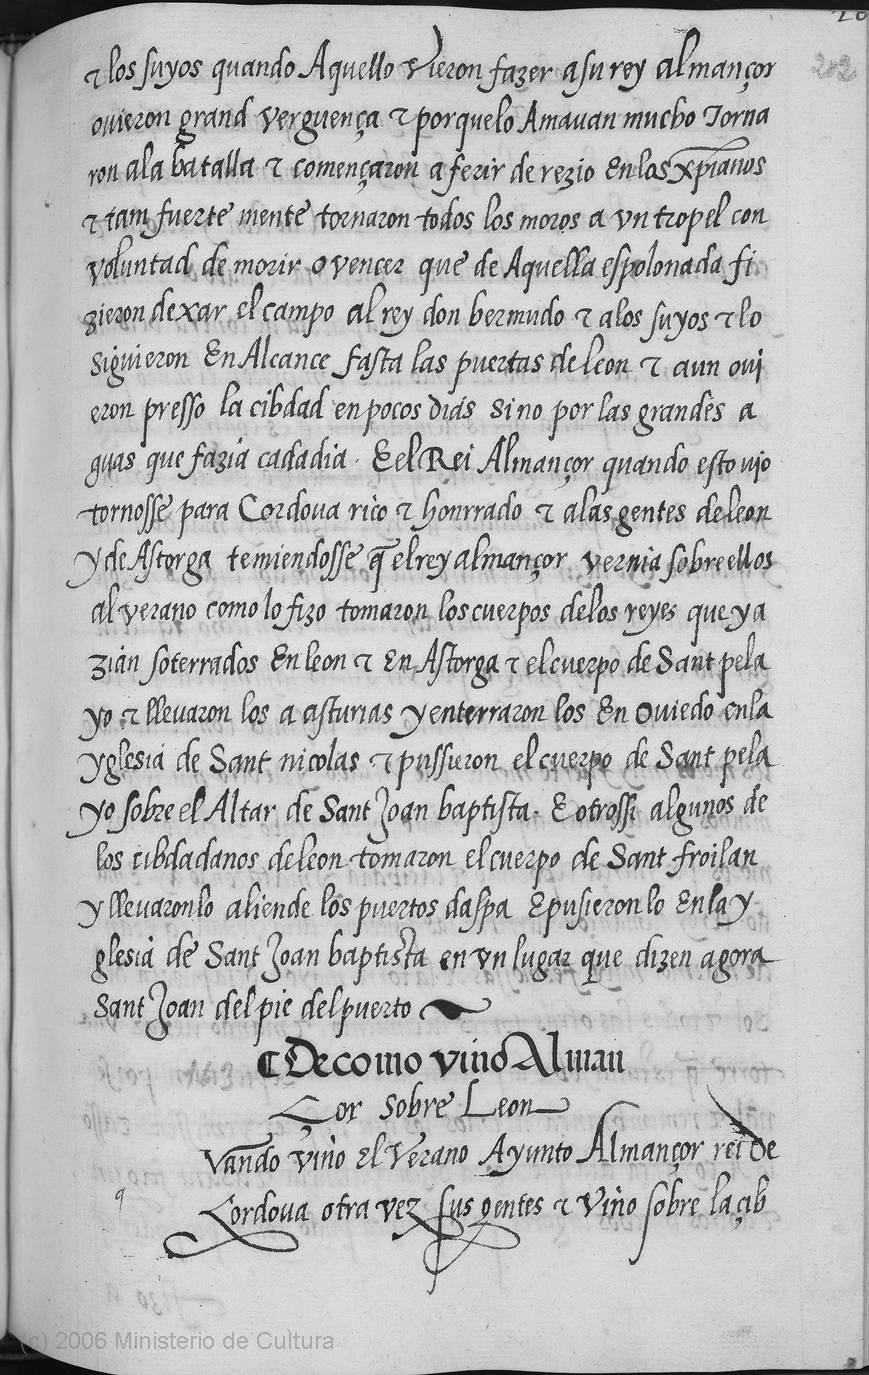 202
⁊ los suyos quando Aquello vieron fazer a su rey almançor
ouieron grand verguença ⁊ porquelo Amauan mucho Torna
ron ala batalla ⁊ començaron a ferir de rezio En los xp̄ianos
⁊ tam fuerte mente tornaron todos los moros a vn tropel con
voluntad de morir o vencer que de Aquella espolonada fi
zieron dexar el campo al rey don bermudo ⁊ a los suyos ⁊ lo
siguieron En Alcance fasta las puertas de leon ⁊ aun oui
eron presso la cibdad en pocos dias sino por las grandes a
guas que fazia cada dia. E el Rei Almançor quando esto vio
tornosse para Cordoua rico ⁊ honrrado ⁊ a las gentes de leon
y de Astorga temiendosse q̄ el rey almançor vernia sobre ellos
al verano como lo fizo tomaron los cuerpos de los reyes que ya
zian soterrados En leon ⁊ En Astorga ⁊ el cuerpo de Sant pela
yo ⁊ lleuaron los a asturias y enterraron los En Ouiedo en la
yglesia de Sant nicolas ⁊ pussieron el cuerpo de Sant pela
yo sobre el Altar de Sant Joan baptista. E otrossi algunos de
los cibdadanos de leon tomaron el cuerpo de Sant froilan
y lleuaronlo aliende los puertos daspa E pusieron lo En la y
glesia de Sant Joan baptista en vn lugar que dizen agora
Sant Joan del pie del puerto
¶ De como vino Alman
Çor sobre Leon
vando vino el Verano Ayunto Almançor rei de
q
Cordoua otra vez sus gentes ⁊ Vino sobre la çib
(c) 2006 Ministerio de Cultura